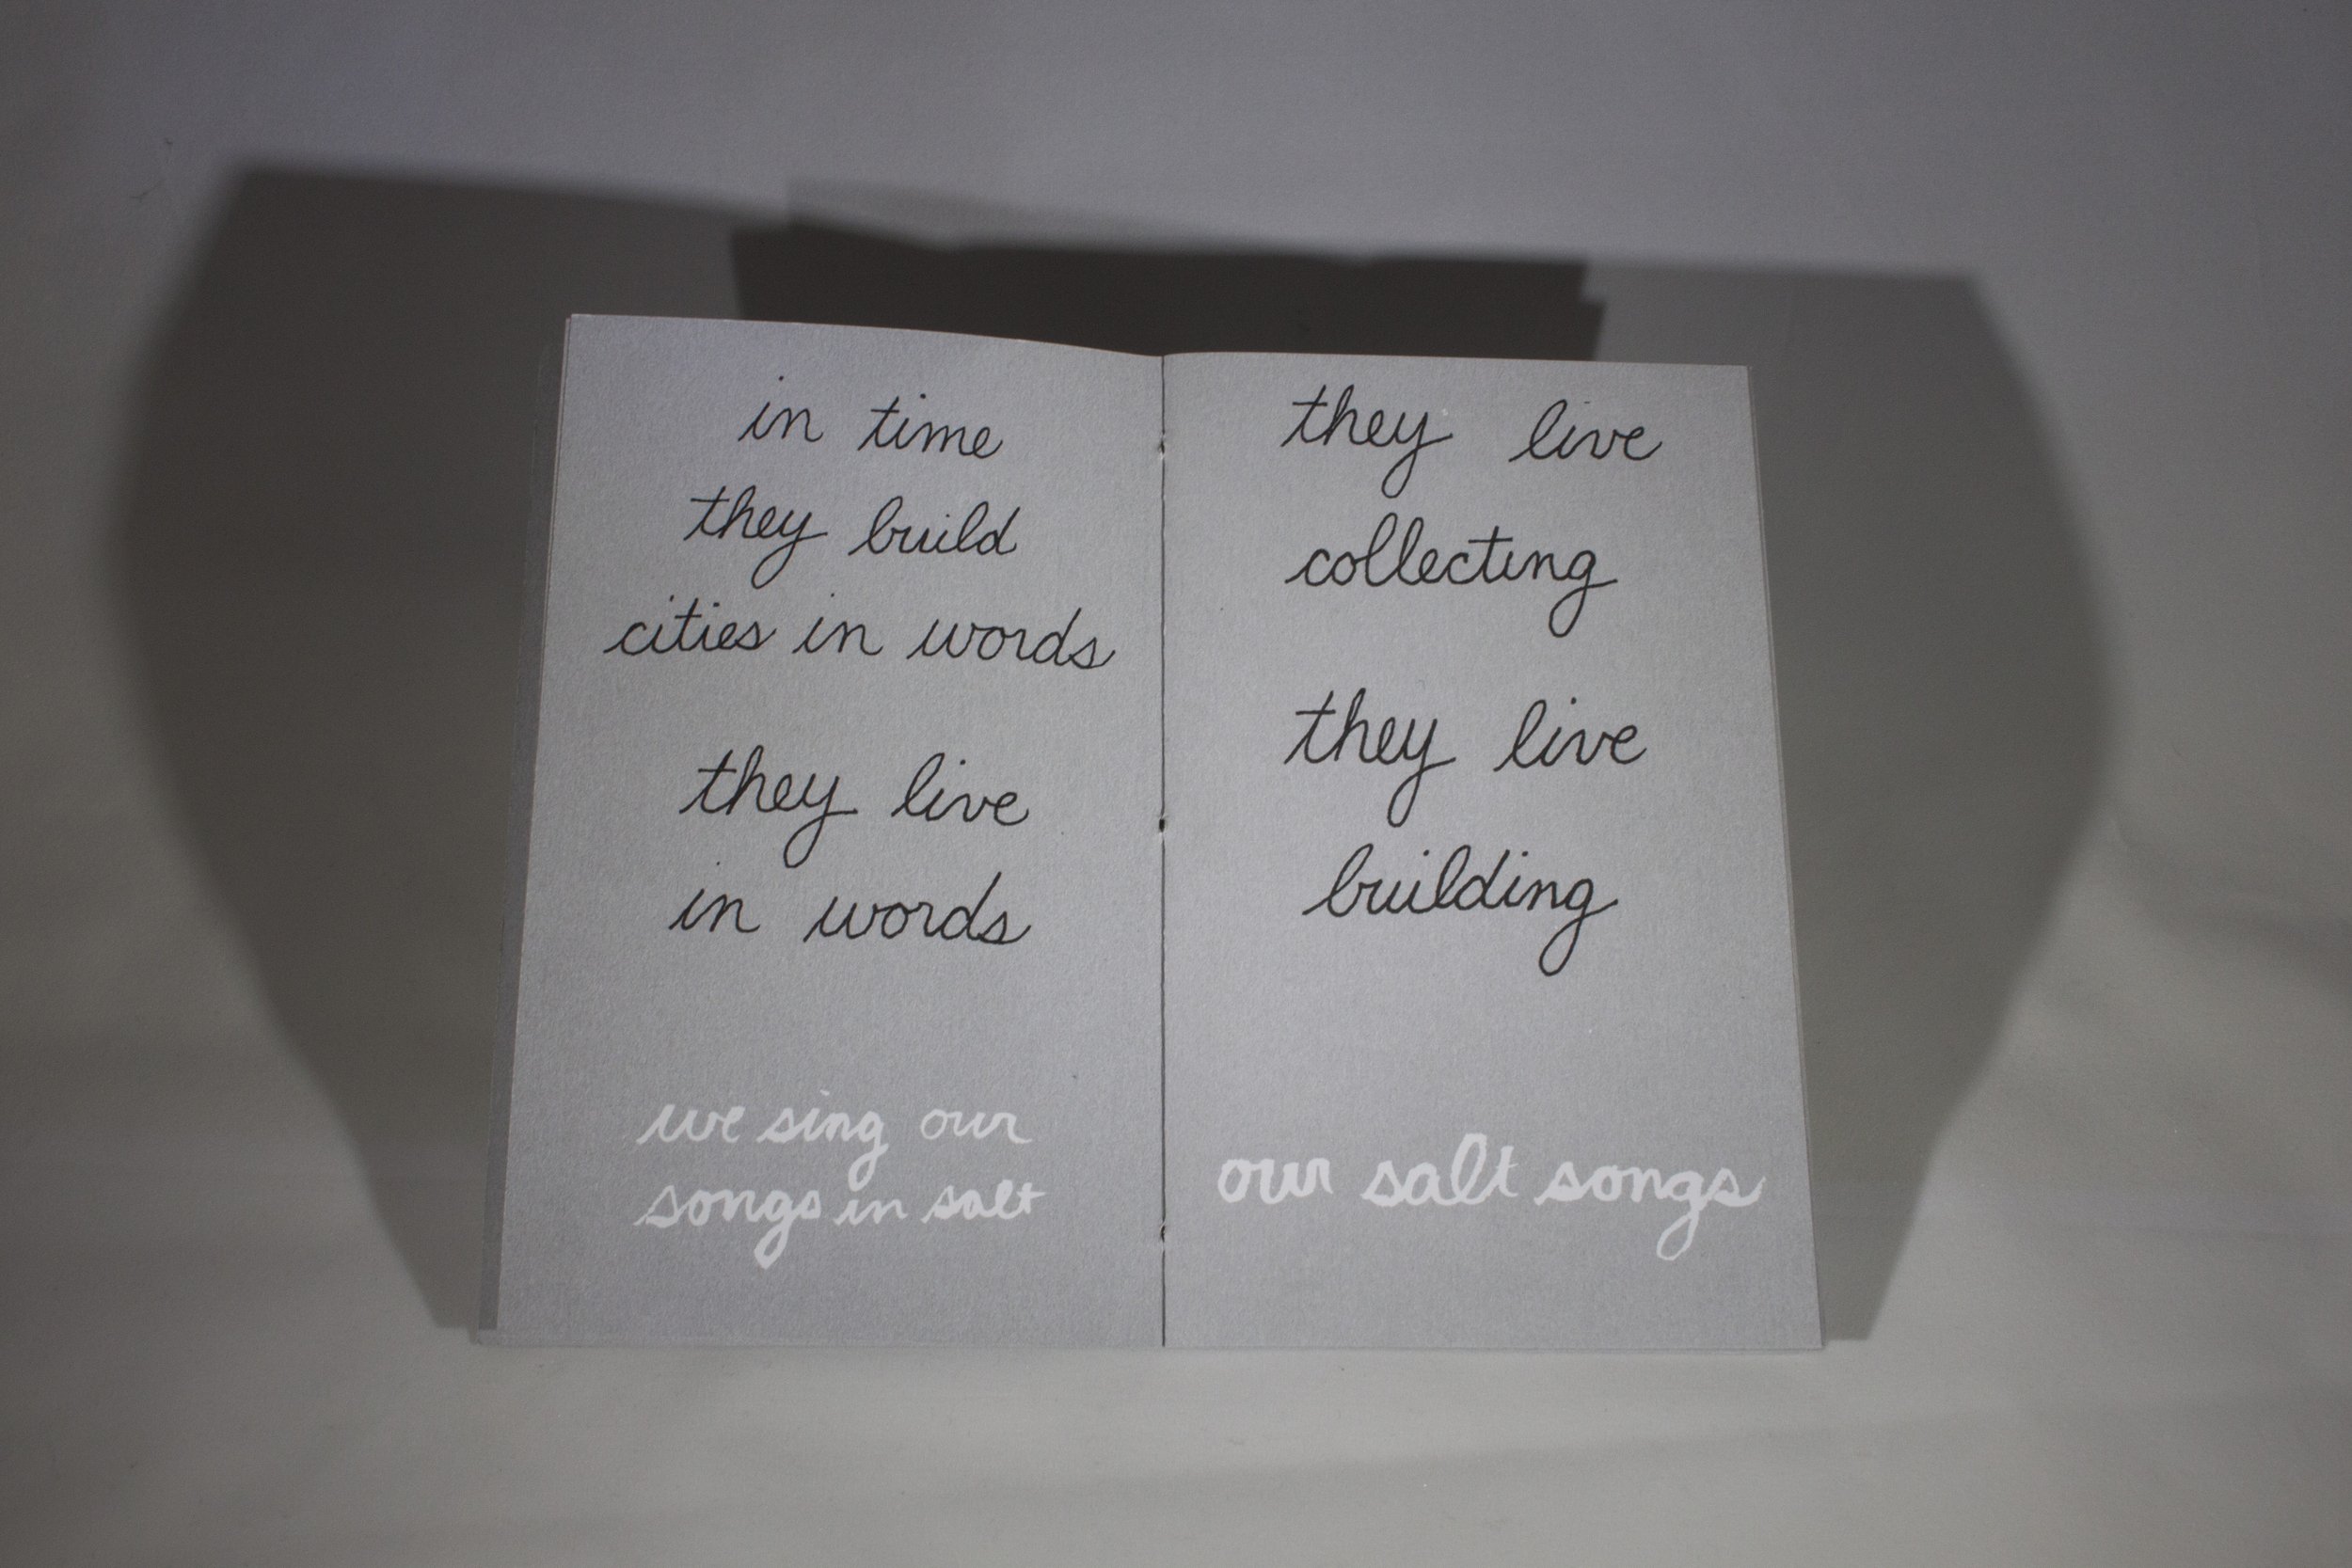 in time
they build
cities in words
they live
in words
we sing our
songs in salt
they live
collecting
they live
building
our salt songs